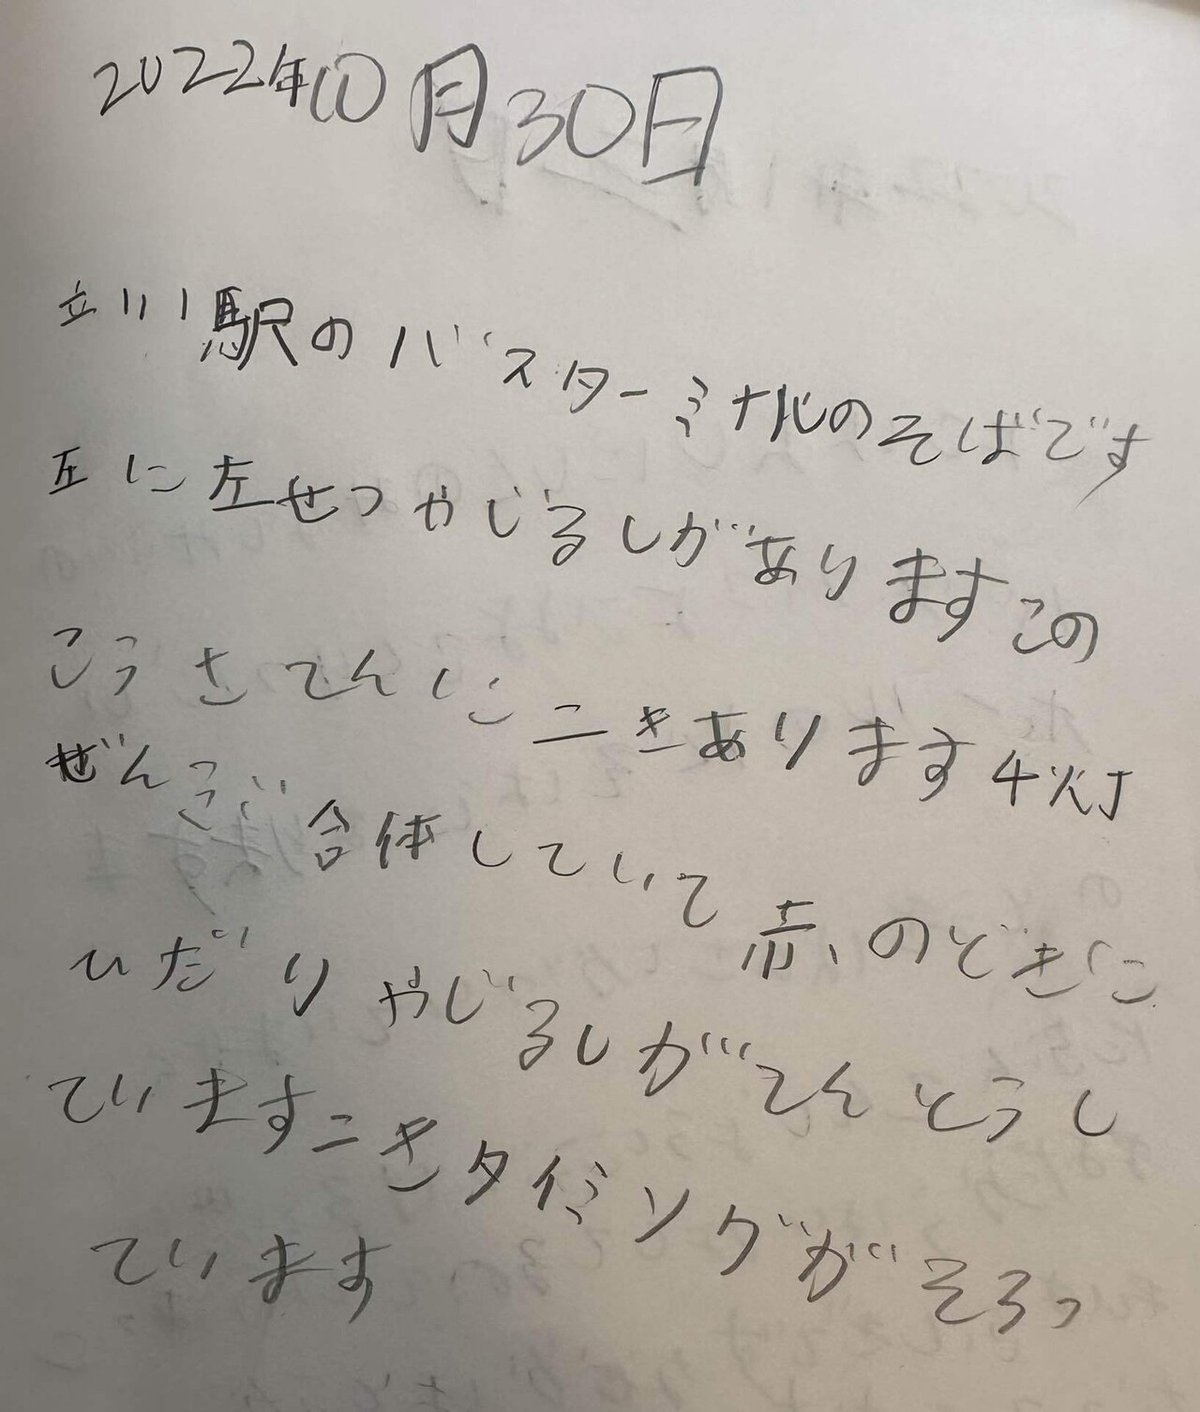 2022年10月30日
立川駅のバスターミナルのそばです
左に左せつやじるしがありますこの
こうさてんにニきあります4灯
ぜんごい合体していて赤、のどきに
ひだりやじるしがてんとうし
ていますニきタイミングがそろっ
ています